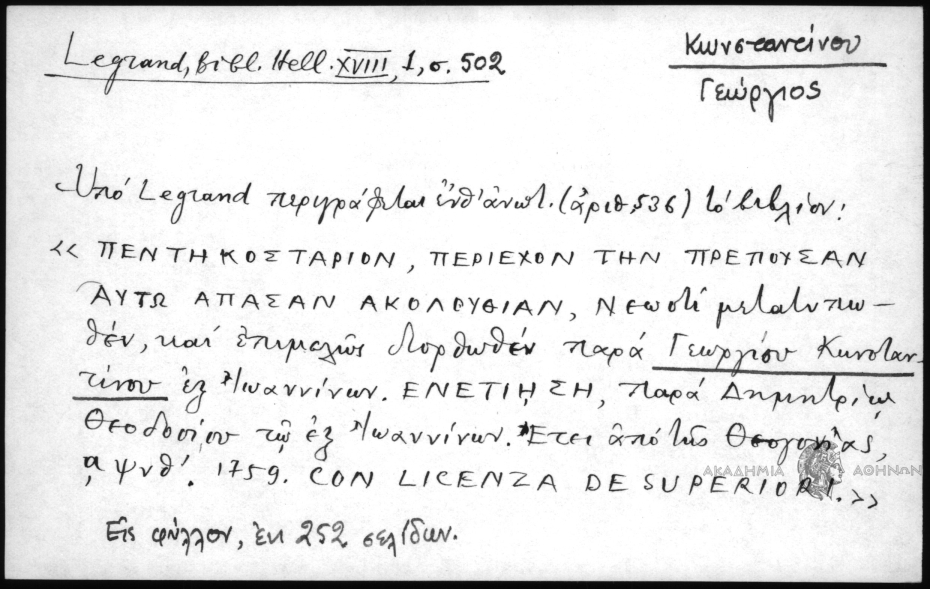 Legrand, Bibl. Hell. XVIII, 1, σ. 502
Κωνσταντίνου
Γεώργιος
Ὑπό Legrand περιγράφεται ἐνθ' ἀνωτ. (ἀριθ. 536) τό βιβλίον:
«ΠΕΝΤΗΚΟΣΤΑΡΙΟΝ, ΠΕΡΙΕΧΟΝ ΤΗΝ ΠΡΕΠΟΥΣΑΝ
ΑΥΤΩ ΑΠΑΣΑΝ ΑΚΟΛΟΥΘΙΑΝ, Νεωστί μετατυπω-
θέν, καί ἐπιμελῶς διορθωθέν παρά Γεωργίου Κωνσταν-
τίνου ἐξ Ἰωαννίνων. ΕΝΕΤΙΗΣΗ, παρά Δημητρίῳ
Θεοδοσίου τῷ ἐξ Ἰωαννίνων. Ἔτει ἀπό τῆς Θεογονίας,
͵αψνθ'. 1759. CON LICENZA DE SUPERIORI.»
ΑΚΑΔΗΜΙΑ ΑΘΗΝΩΝ
Εἰς φύλλον, ἐκ 252 σελίδων.